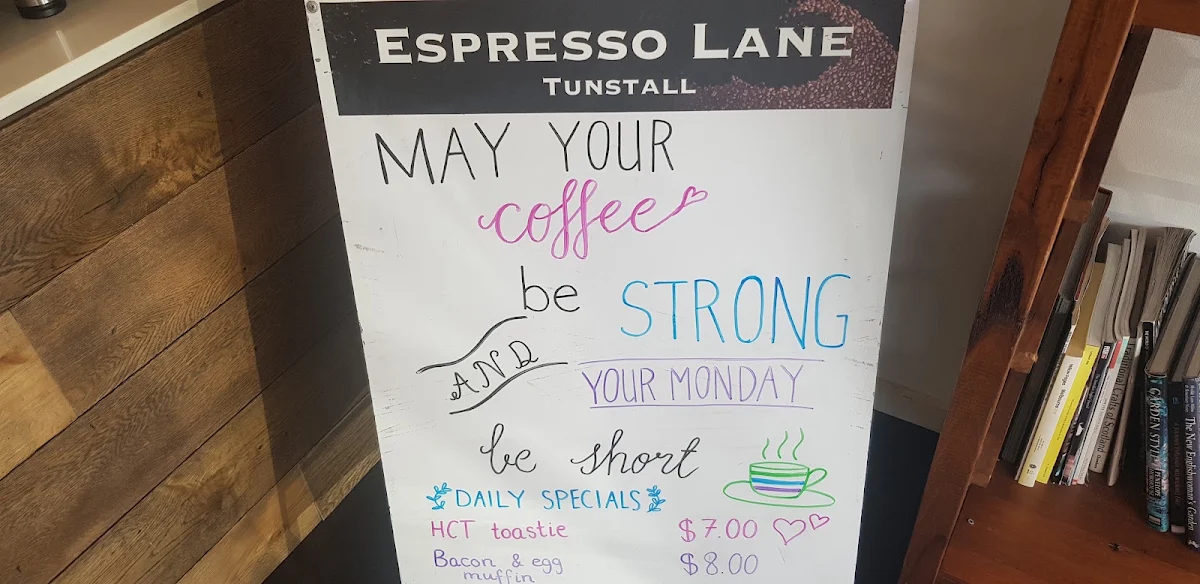 ESPRESSO LANE
TUNSTALL
MAY YOUR
coffee
be STRONG
AND
YOUR MONDAY
be short
DAILY SPECIALS
HCT toastie $7.00
Bacon & egg $8.00
muffin
Traditional Crafts of Scotland
GARDEN STYLE
The New Englishwoman's Garden